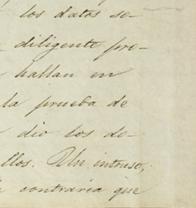 los datos se-
diligente pre-
hallan en
la prueba de
dio los de-
llos. Un intruso,
contraria que